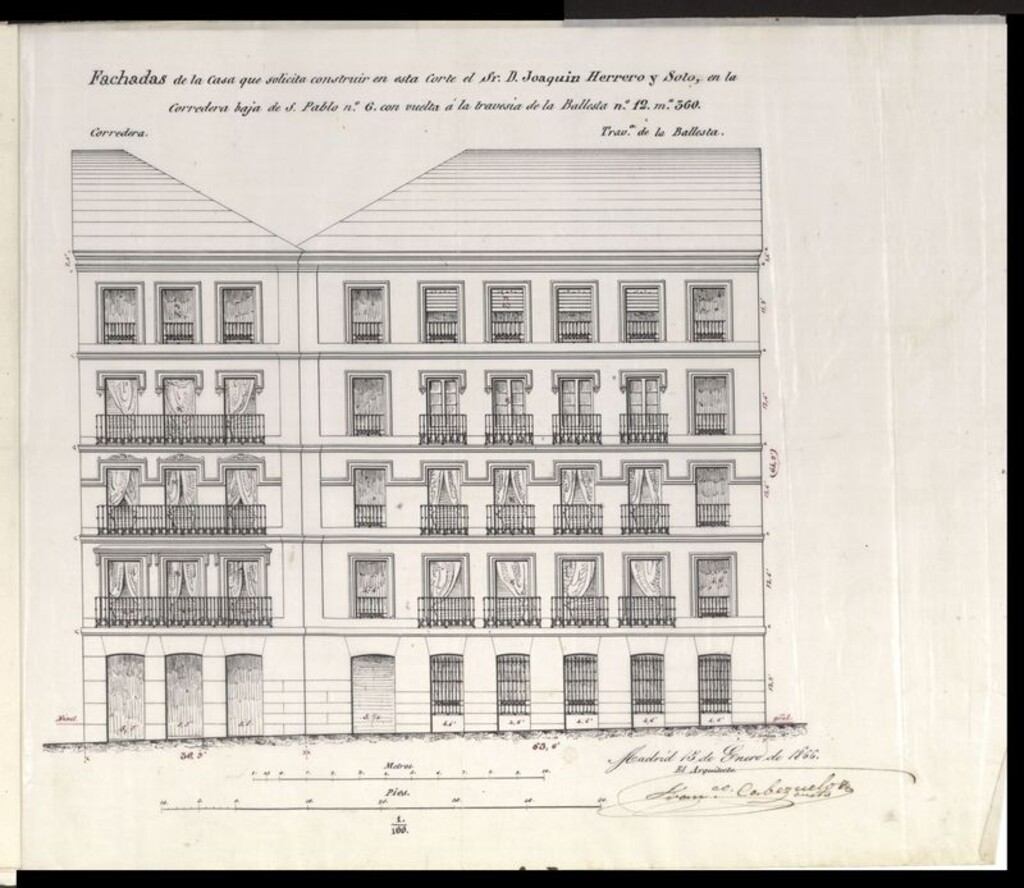 Fachadas de la Casa que solicita construir en esta Corte el Sr. D. Joaquin Herrero y Soto, en la
Corredera baja de S. Pablo n.º 6. con vuelta á la travesia de la Ballesta n.º 12. m.ª 360.
Corredera.
Trav.ª de la Ballesta.
Nivel.
36, 5'
63, 6'
Madrid 15 de Enero de 1866.
El Arquitecto
Metros
Fran.co Cabezuelo
Pies.
1.
100.